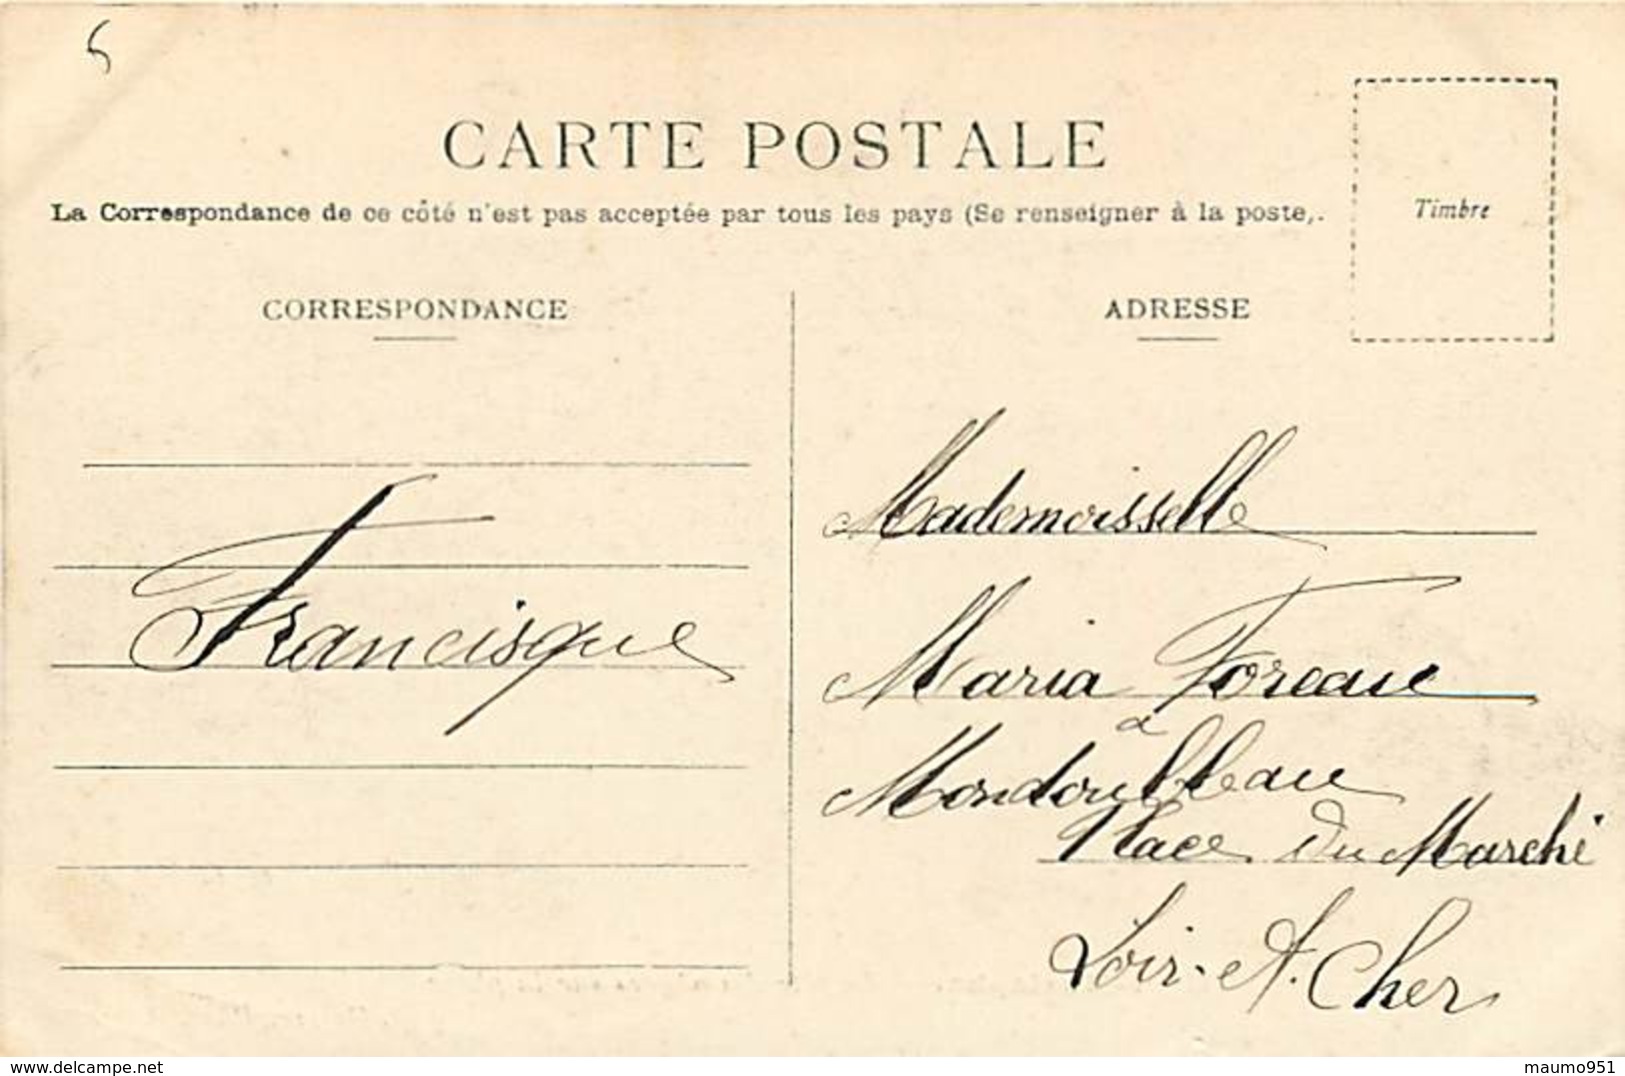 5
CARTE POSTALE
La Correspondance de ce côté n'est pas acceptée par tous les pays (Se renseigner à la poste,.
Timbre
CORRESPONDANCE
ADRESSE
Francisque
Mademoisselle
Maria Foreau
a
Mondoubleau
Place du Marché
Loir-et-Cher
www.delcampe.net
maumo951